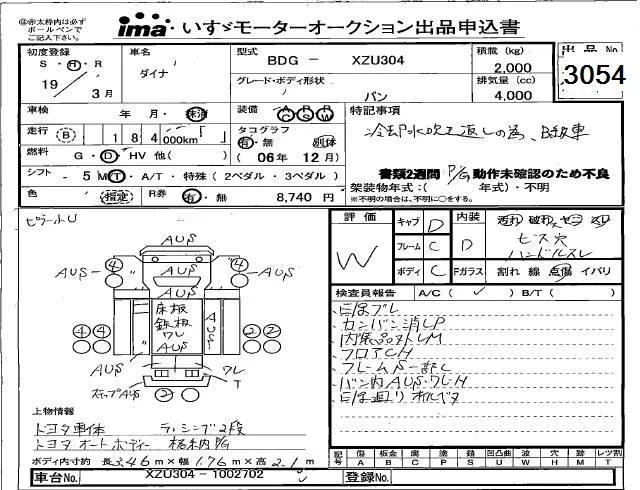 ◎赤太枠内は必ず
ボールペンで
ご記入下さい。
ima いすゞモーターオークション出品申込書
初度登録 車名 型式 積載 (kg) 出品No.
S・H・R ダイナ BDG - XZU304 2,000 3054
19 / 3月 グレード・ボディ形状 排気量 (cc)
バン 4,000
車検 年 月・抹消 装備 AC PS PW 特記事項
走行 B 184 000km タコグラフ 冷却水吹き返しの為、B級車
有・無 別体
燃料 G・D HV 他( ) (06年 12月)
シフト - 5 MT・A/T・特殊 (2ペダル・3ペダル) 書類2週間 P/G動作未確認のため不良
架装物年式:( 年式)・不明
色 指定 R券 有・無 8,740 円 ※不明の場合は、不明に○をする。
ピラーサU
評価 キャブ D 内装 汚れ 破れ
W フレーム C D ビス穴
ハンドルスレ
ボディ C Fガラス 割れ 線 点傷 イバリ
検査員報告 A/C( ✓ ) B/T( )
AUS
AUS ④ ④ AUS
AUS
床板
鉄板
ワレ
AUS AUS
④④ ②②
AUS ワレ
T
ステップAUS ②
カンバン消しP
内装品外しM
フロアCH
フレームS一部C
バン内AUS・ワレH
上物情報
トヨタ車体 ラッシング2段
トヨタオートボディー 格納P/G
ボディ内寸約 長 3.46m×幅 1.76m×高 2.1m
記号 傷 板金 腐 塗 錆 凹凸曲 波 穴 跡 レツ割
A B C P S U W H M T
車台No. XZU304 - 1002702 登録No.